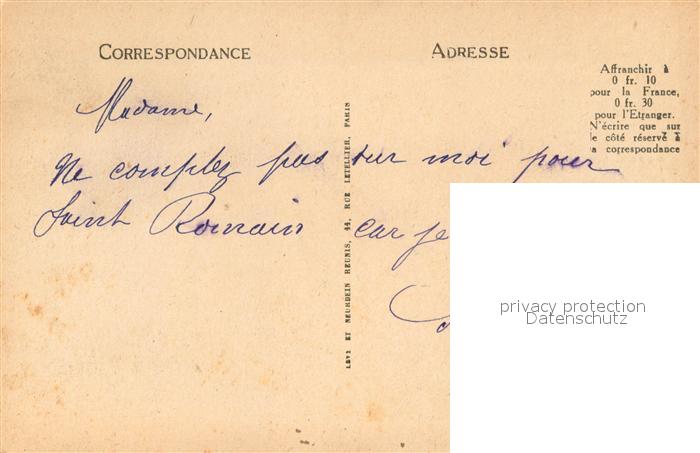 CORRESPONDANCE
ADRESSE
Affranchir à
0 fr. 10
pour la France,
0 fr. 30
pour l'Etranger.
N'écrire que sur
le côté réservé à
la correspondance
Madame,
Ne comptez pas sur moi pour
Saint Romain car je
LEVY ET NEURDEIN REUNIS, 44, RUE LETELLIER, PARIS
privacy protection
Datenschutz